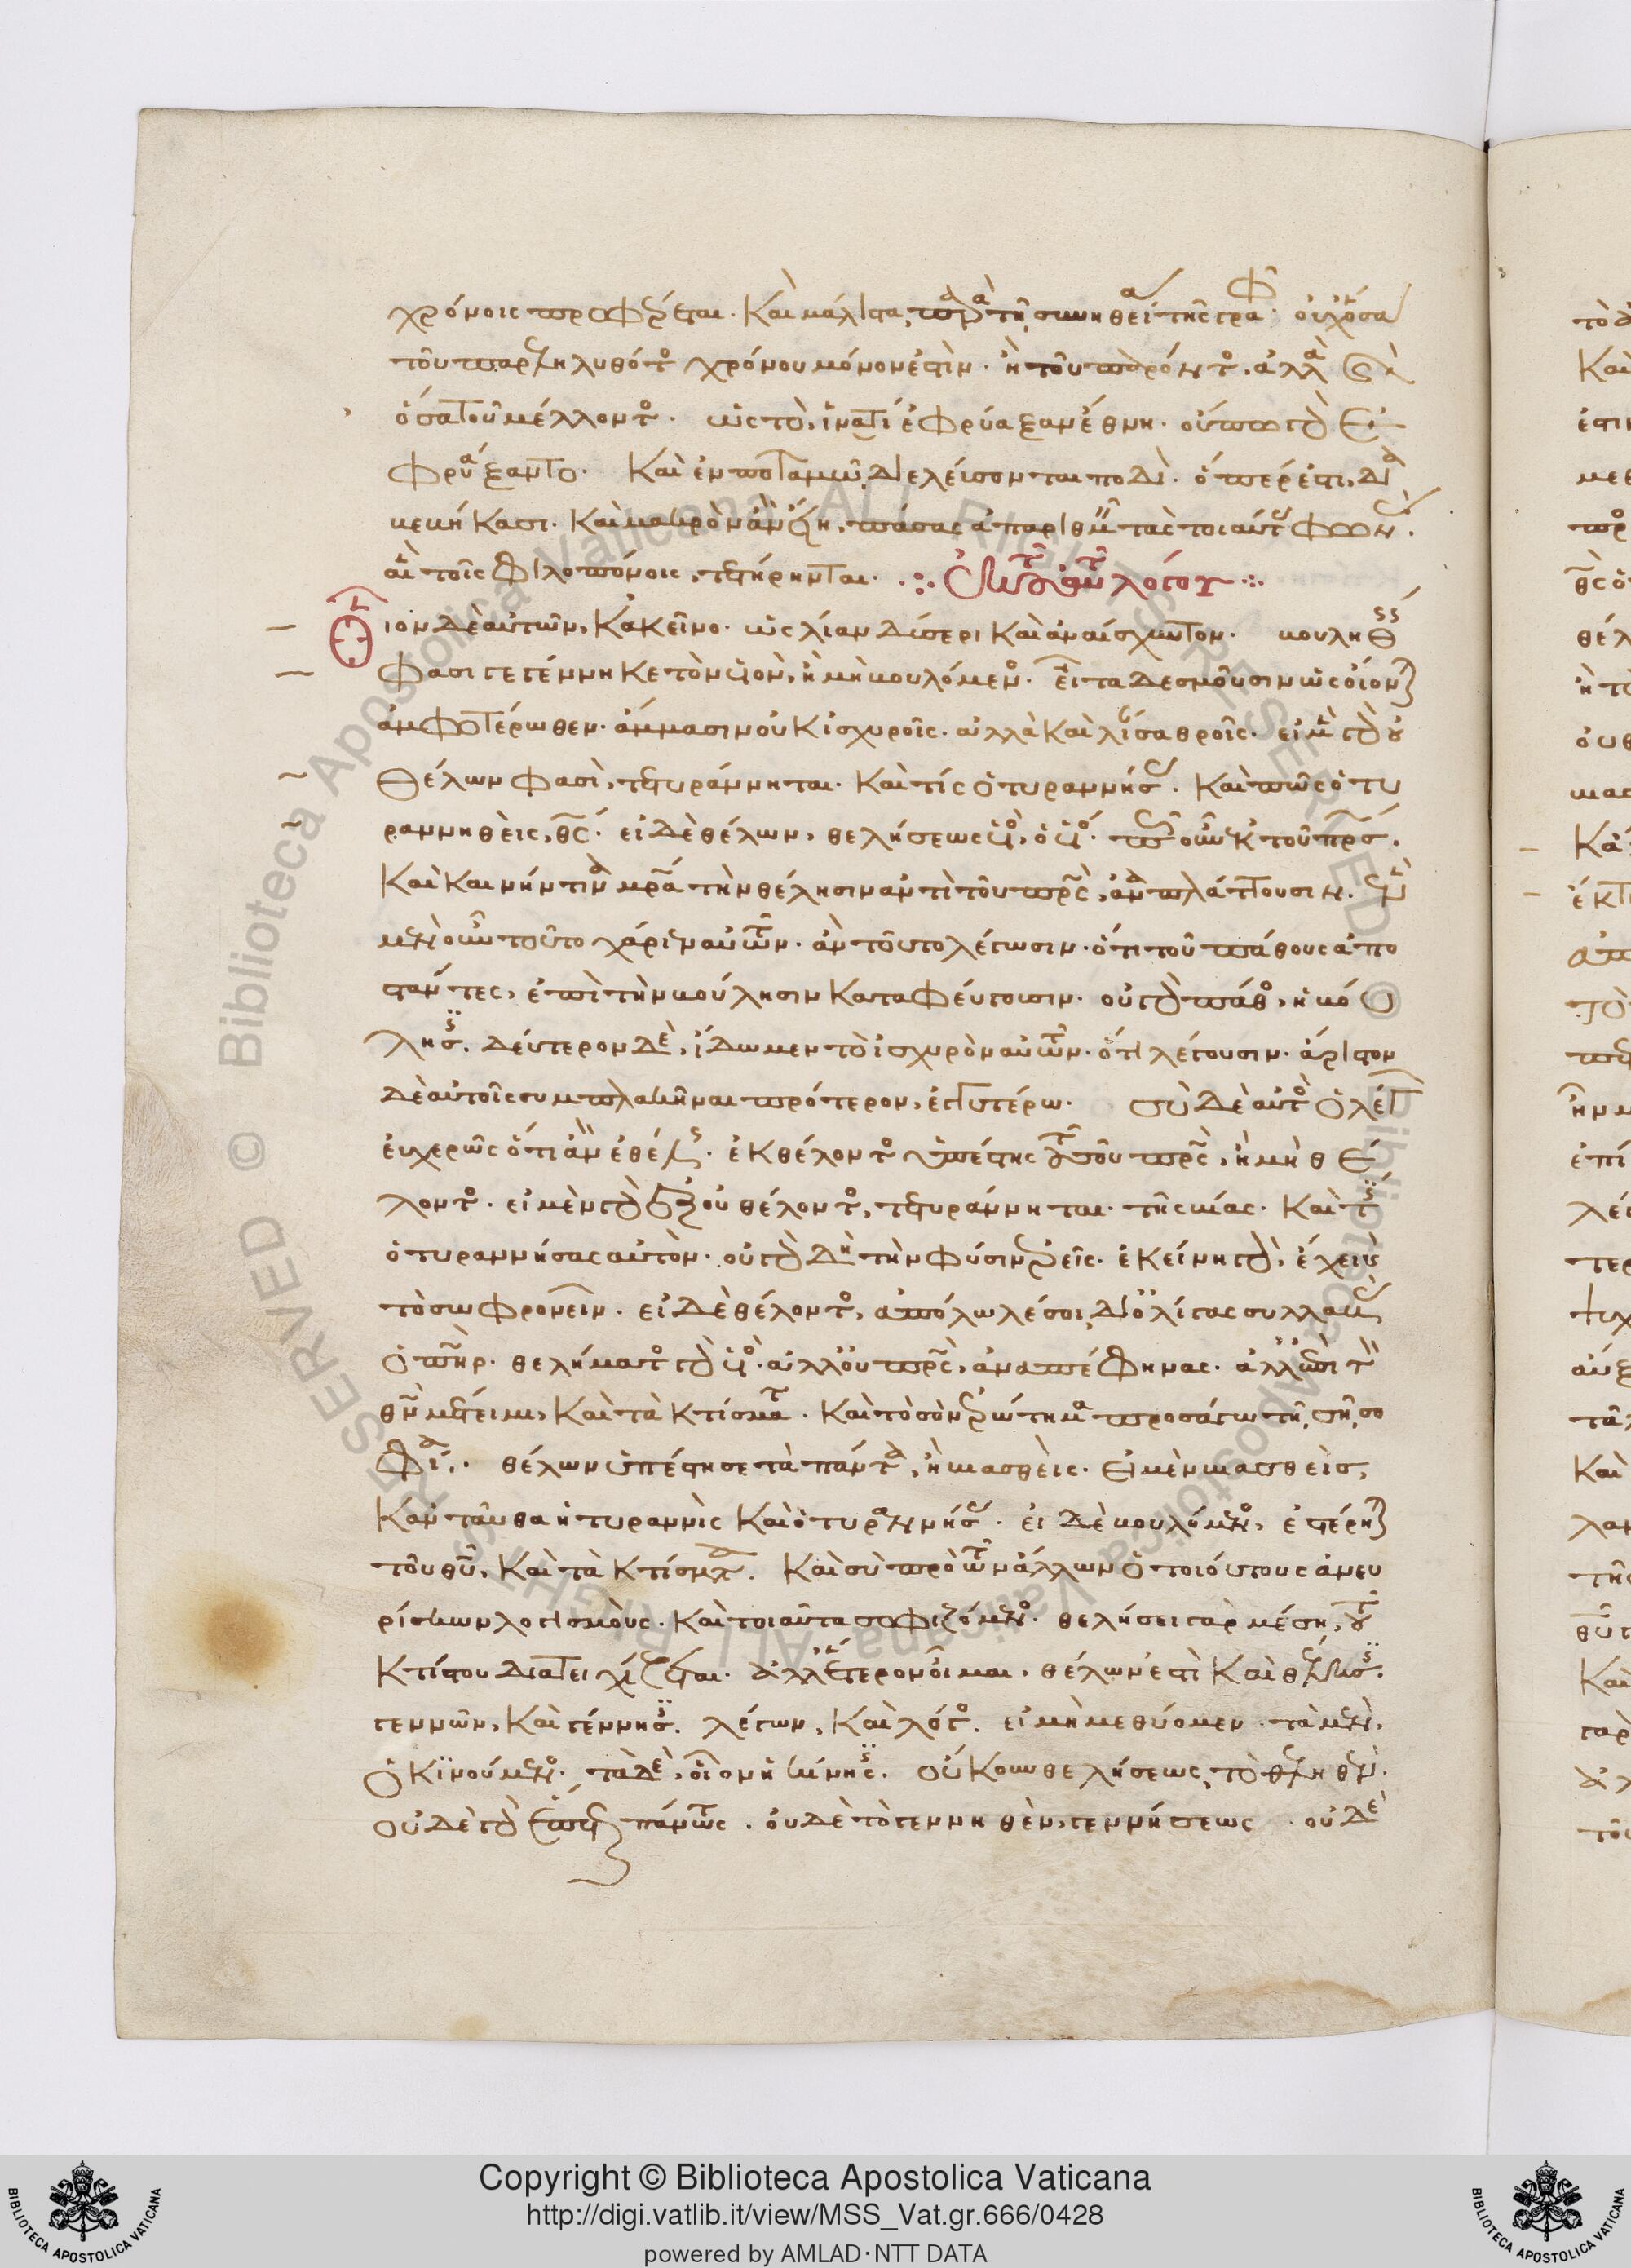 χρόνοις προφέρεται. Καὶ μάλιστα, παρὰ τῆ συνηθεία τῆς γραφῆς. οὐχ ὅσα
τοῦ παρεληλυθότος χρόνου μόνον ἐστὶν. ἢ τοῦ παρόντος. ἀλλὰ καὶ
ὅσα τοῦ μέλλοντος. ὡς τὸ, ἱνατί ἐφρύαξαν ἔθνη. οὔπω γὰρ ἐ
φρύαξαντο. Καὶ ἐν ποταμῶ διελεύσονται ποδὶ. ὅπερ ἐστι, δια
βεβήκασι. Καὶ μακρὸν ἂν εἴη, πάσας ἀπαριθμεῖν τὰς τοιαύτας φωνὰς.
αἳ τοῖς φιλοπόνοις, τετήρηνται. Ἐκ τοῦ αὐτοῦ λόγου
Οἷον δὲ αὐτῶν, Κἀκεῖνο. ὡς λίαν δύσερι Καὶ ἀναίσχυντον. βουληθεὶς
φασι γεγέννηκε τὸν υἱὸν, ἢ μὴ βουλόμενος. εἶτα δεσμοῦσιν ὡς οἴον
ἀμφοτέρωθεν. ἅμμασιν οὐκ ἰσχυροῖς. ἀλλὰ Καὶ λίαν σαθροῖς. εἰ μὲν γὰρ οὐ
θέλων φασὶ, τετυράννηται. Καὶ τίς ὁ τυραννήσας. Καὶ πῶς ὁ τυ
ραννηθεὶς, θεός. εἰ δὲ θέλων, θελήσεως υἱὸς, ὁ υἱός. πῶς οὖν ἐκ τοῦ πατρός.
Καὶ καινήν τινα μητέρα τὴν θέλησιν ἀντὶ τοῦ πατρὸς, ἀναπλάττουσιν. ἓν
μὲν οὖν τοῦτο χάριεν αὐτῶν. ἂν τοῦτο λέγωσιν. ὅτι τοῦ πάθους ἀπο
στάντες, ἐπὶ τὴν βούλησιν καταφεύγουσιν. οὐ γὰρ πάθος, ἡ βού
λησις. δεύτερον δὲ, ἴδωμεν τὸ ἰσχυρὸν αὐτῶν. ὅτι λέγουσιν. ἄριστον
δὲ αὐτοῖς συμπλακῆναι πρότερον, ἐγγυτέρω. σὺ δὲ αὐτὸς ὁ λέγων
εὐχερῶς ὅτι ἂν ἐθέλης. ἐκ θέλοντος ὑπέστης τοῦ σοῦ πατρὸς, ἢ μὴ θέ
λοντος. εἰ μὲν γὰρ ἐξ οὐ θέλοντος, τετυράννηται. τῆς βίας. Καὶ τίς
ὁ τυραννήσας αὐτὸν. οὐ γὰρ δὴ τὴν φύσιν ἐρεῖς. ἐκείνη γὰρ, ἔχει καὶ
τὸ σωφρονεῖν. εἰ δὲ θέλοντος, ἀπόλωλέ σοι, δι' ὀλίγας συλλαβὰς
ὁ πατὴρ. θελήματος γὰρ υἱὸς. ἀλλ' οὐ πατρὸς, ἀναπέφηνας. ἀλλ' ἐπὶ τὸν
θεὸν μέτειμι, Καὶ τὰ κτίσματα. Καὶ τὸ σὸν ἐρώτημα προσάγω τῆ σῆ σο
φία. θέλων ὑπέστησε τὰ πάντα, ἢ βιασθεὶς. εἰ μὲν βιασθεὶς,
Κἀνταῦθα ἡ τυραννὶς Καὶ ὁ τυραννήσας. εἰ δὲ βουλόμενος, ἐστέρη
τοῦ θεοῦ, Καὶ τὰ κτίσματα. Καὶ σὺ πρὸ τῶν ἄλλων ὁ τοιούτους ἀνευ
ρίσκων λογισμοὺς. Καὶ τοιαῦτα σοφιζόμενος. θελήσει γὰρ μέση, τοῦ
κτίστου διατειχίζεται. ἀλλ' ἕτερον οἶμαι, θέλων ἐστὶ Καὶ θέλησις.
γεννῶν, Καὶ γέννησις. λέγων, Καὶ λόγος. εἰ μὴ μεθύομεν. τὰ μὲν,
ὁ κινούμενος. τὰ δὲ, οἷον ἡ κίνησις. οὔκουν θελήσεως, τὸ θεληθὲν.
οὐδὲ γὰρ ἕπεται πάντως. οὐδὲ τὸ γεννηθὲν, γεννήσεως. οὐδὲ
Copyright © Biblioteca Apostolica Vaticana
http://digi.vatlib.it/view/MSS_Vat.gr.666/0428
powered by AMLAD·NTT DATA